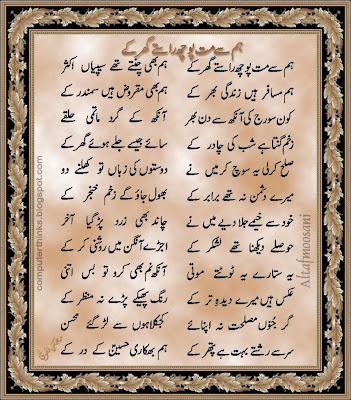 ہم سے مت پوچھ راستے گھر کے
ہم سے مت پوچھ راستے گھر کے
ہم مسافر ہیں زندگی بھر کے
ہم بھی چنتے تھے سیپیاں اکثر
ہم بھی مقروض ہیں سمندر کے
کون سورج کی آنکھ سے دن بھر
زخم گنتا ہے شب کی چادر کے
آنکھ کے گرد ماتمی حلقے
سائے جیسے جلے ہوئے گھر کے
صلح کر لی یہ سوچ کر میں نے
میرے دشمن نہ تھے برابر کے
دوستوں کی زباں تو کھلنے دو
بھول جاؤ گے زخم خنجر کے
خود سے خیمے جلا دیے میں نے
حوصلے دیکھنا تھے لشکر کے
چاند بھی زرد پڑ گیا آخر
اجڑے آنگن میں روشنی کر کے
یہ ستارے یہ ٹوٹتے موتی
عکس ہیں میرے دیدہِ تر کے
آنکھ نم بھی کرو تو بس اتنی
رنگ پھیکے پڑے نہ منظر کے
گر جنوں مصلحت نہ اپنائے
سر سے رشتے بہت ہے پتھر کے
کجکلاہوں سے لڑ گئے محسن
ہم بھکاری حسینؑ کے در کے
computerthinks.blogspot.com
Altafmoosani